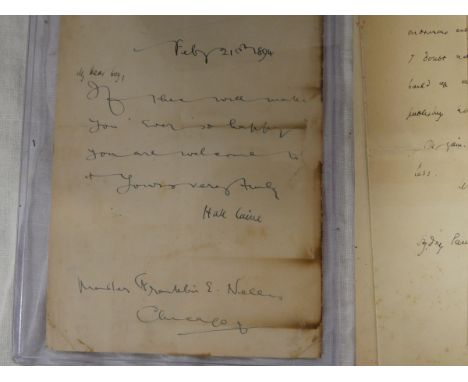 Feby 21st 1894
My dear boy,
If this will make
you "ever so happy"
you are welcome to
it Yours very truly
Hall Caine
Master Franklin E.
Chicago
I doubt
build up
publishing
gain
less.